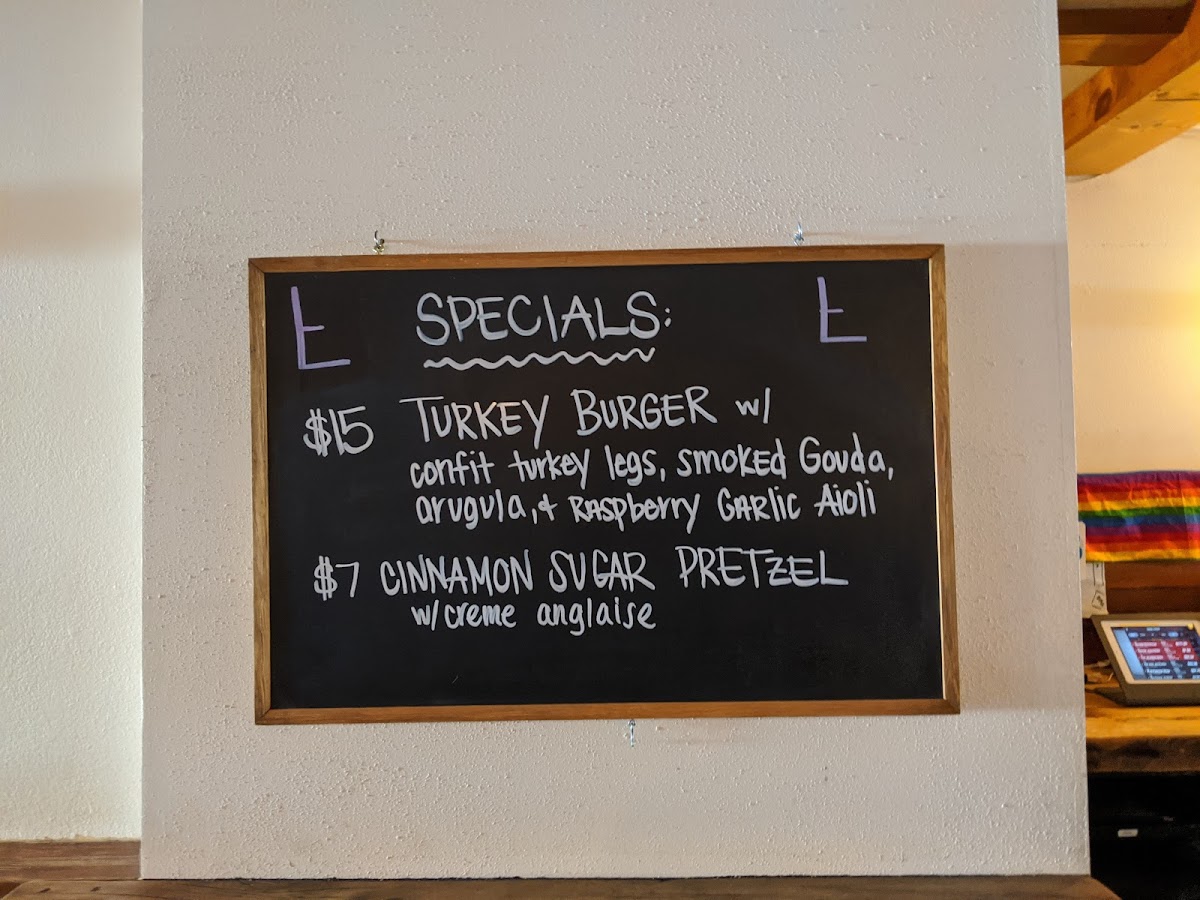 SPECIALS:
$15 TURKEY BURGER w/
confit turkey legs, smoked Gouda,
arugula, & Raspberry Garlic Aioli
$7 CINNAMON SUGAR PRETZEL
w/ creme anglaise